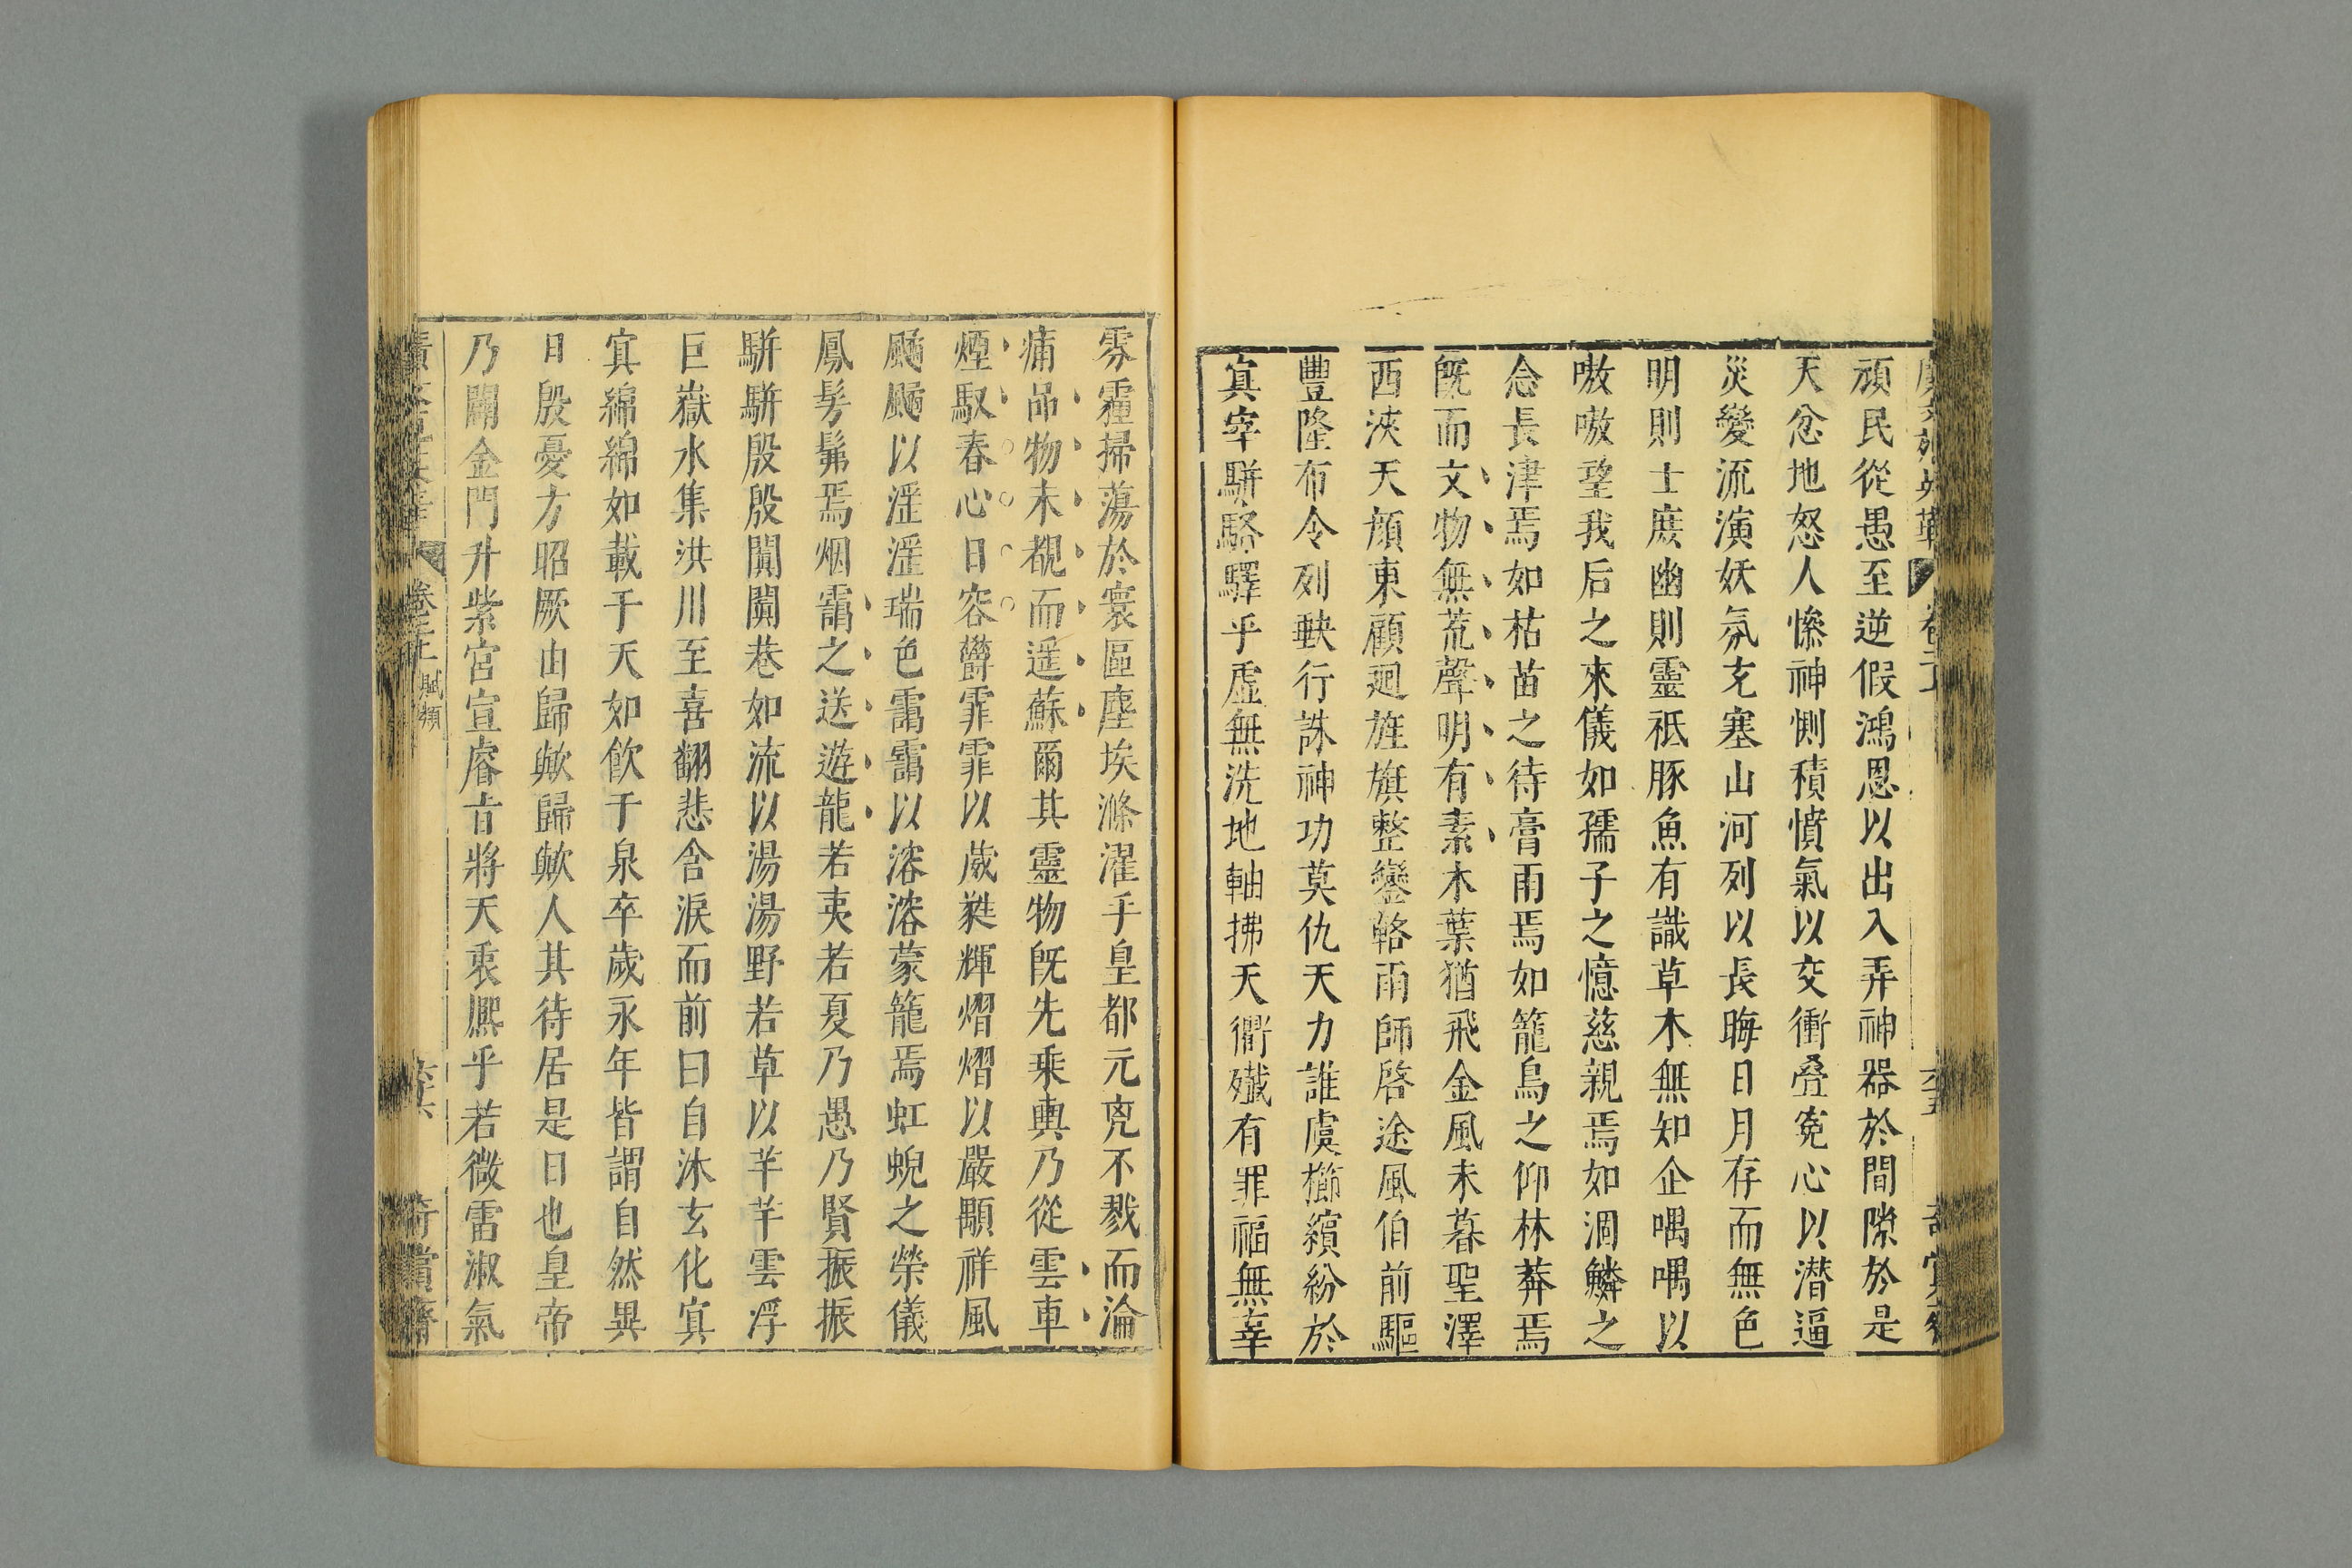 頑民從愚至逆假鴻恩以出入弄神器於間隙於是
天忿地怒人慘神惻積憤氣以交衝疊冤心以潛逼
災變流演妖氛充塞山河列以長晦日月存而無色
明則士庶幽則靈祇豚魚有識草木無知企喁喁以
嗷嗷望我后之來儀如孺子之憶慈親焉如涸鱗之
念長津焉如枯苗之待膏雨焉如籠鳥之仰林莽焉
旣而文物無荒聲明有素木葉猶飛金風未暮聖澤
西浹天顔東顧廻旌旗整鑾輅雨師啓途風伯前驅
豐隆布令列缺行誅神功莫仇天力誰虞櫛繽紛於
寘宰駢駱驛乎虛無洗地軸拂天衢殲有罪福無辜
雰霾掃蕩於寰區塵埃滌濯乎皇都元兇不戮而淪
痡品物未覩而遥蘇爾其靈物旣先乘輿乃從雲車
煙馭春心日容欝霏霏以葳蕤輝熠熠以嚴顒祥風
颺颺以滛滛瑞色靄靄以溶溶蒙籠焉虹蜺之榮儀
鳳髣髴焉烟靄之送遊龍若夷若夏乃愚乃賢振振
駢駢殷殷闐闐巷如流以湯湯野若草以芊芊雲浮
巨嶽水集洪川至喜翻悲含淚而前曰自沐玄化寘
寘綿綿如載于天如飲于泉卒歲永年皆謂自然異
日殷憂方昭厥由歸歟歸歟人其待居是日也皇帝
乃闢金門升紫宮宣睿旨將天衷熈乎若微雷淑氣
卷 賦類